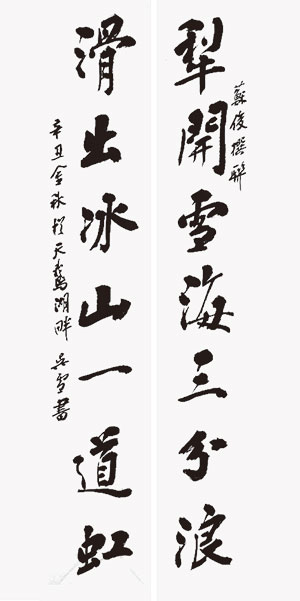 犁開雪海三分浪
蘇俊撰聯
滑出冰山一道虹
辛丑金秋於天鵝湖畔 吳雪書